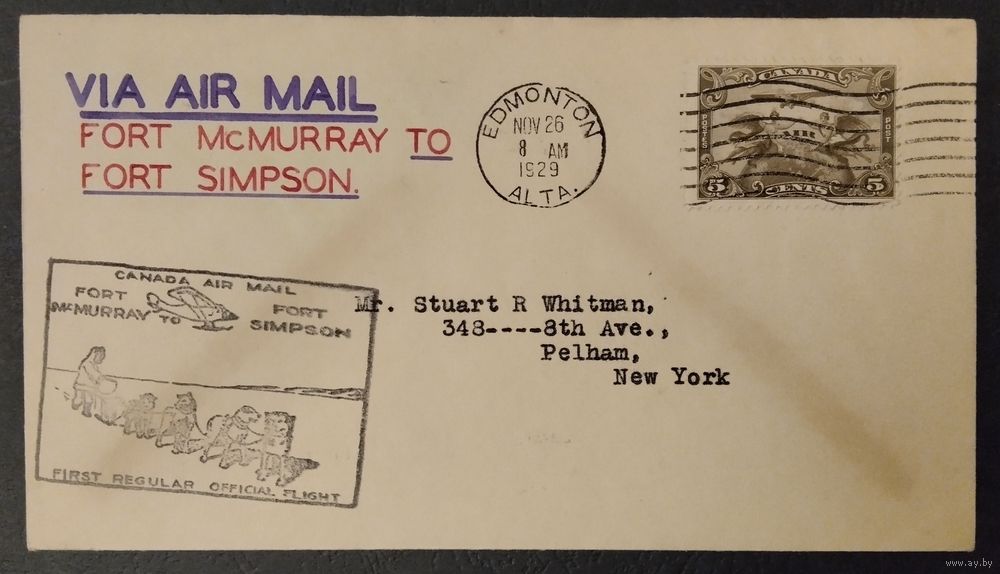 VIA AIR MAIL
FORT McMURRAY TO
FORT SIMPSON.
EDMONTON
NOV 26
8 AM
1929
ALTA.
CANADA
POSTES
AIR
POST
5 CENTS 5
CANADA AIR MAIL
FORT
McMURRAY TO
FORT
SIMPSON
FIRST REGULAR OFFICIAL FLIGHT
Mr. Stuart R Whitman,
348----8th Ave.,
Pelham,
New York
www.ay.by